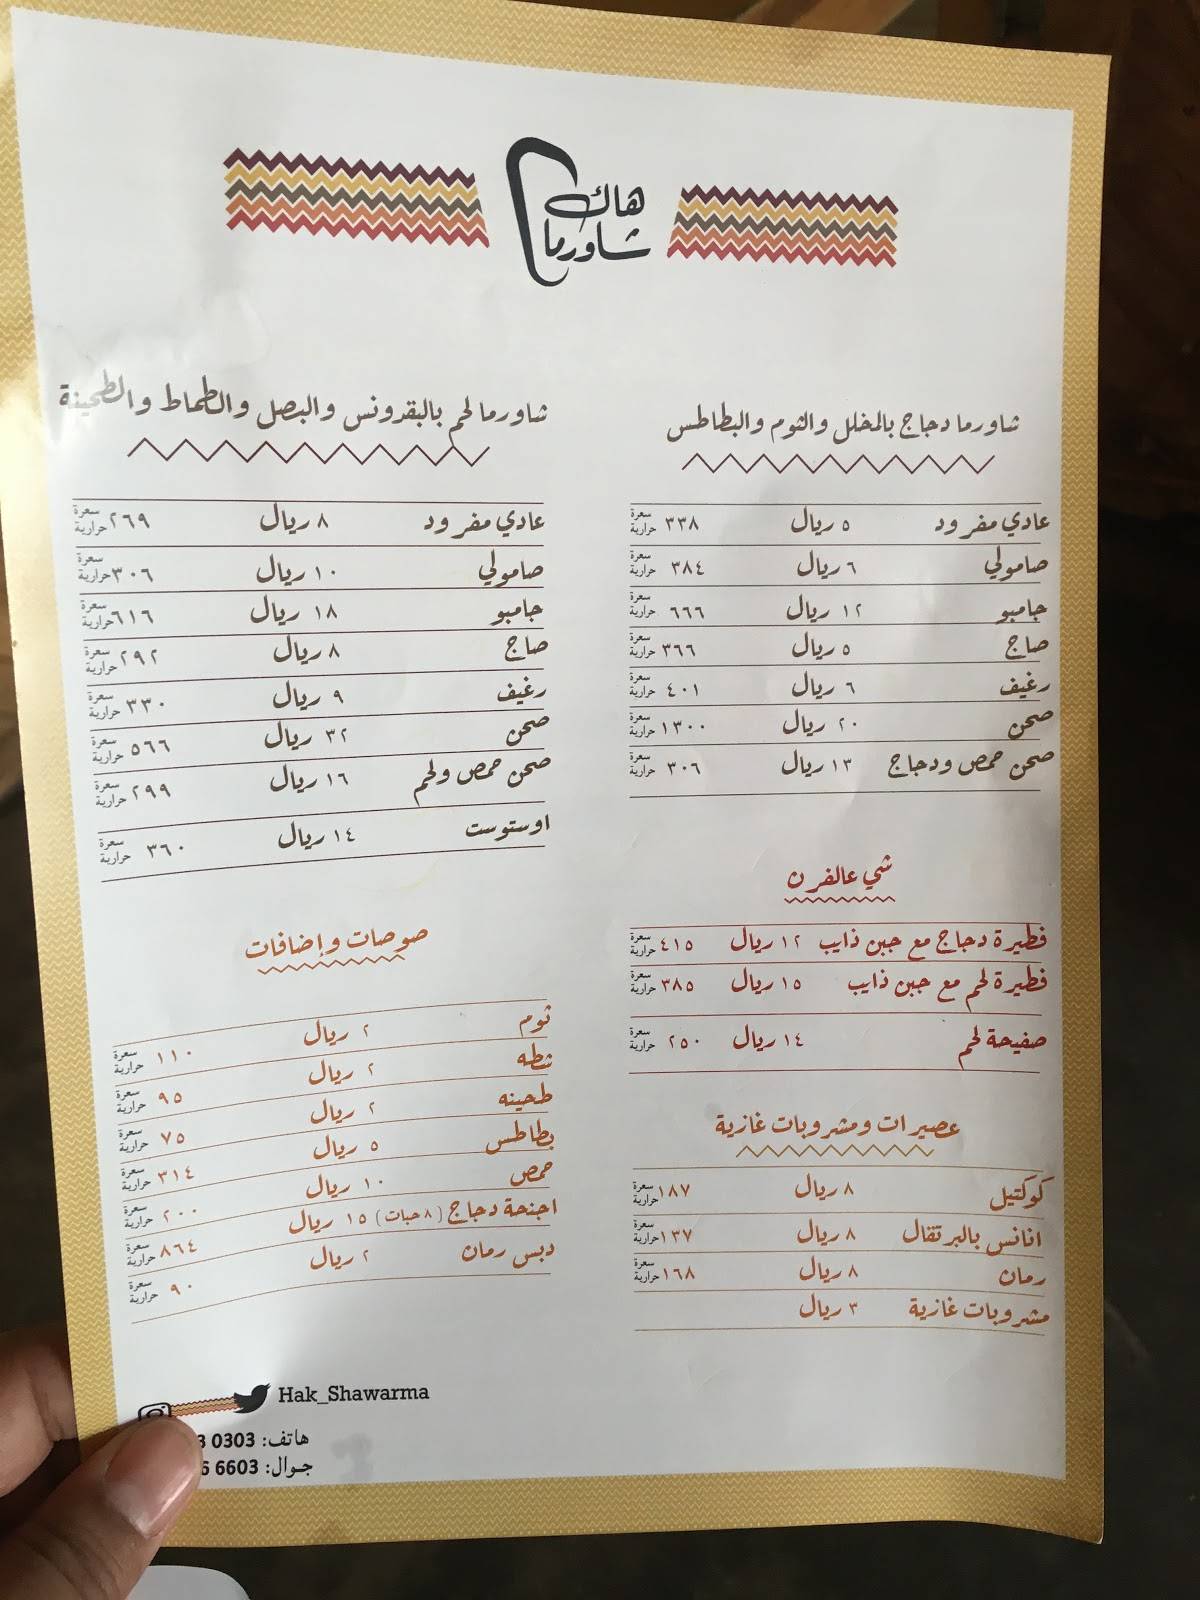 هاك
شاورما
شاورما دجاج بالمخلل والثوم والبطاطس
عادي مفرود ٥ ريال ٣٣٨ سعرة حرارية
صامولي ٦ ريال ٣٨٤ سعرة حرارية
جامبو ١٢ ريال ٦٦٦ سعرة حرارية
صاج ٥ ريال ٣٦٦ سعرة حرارية
رغيف ٦ ريال ٤٠١ سعرة حرارية
صحن ٢٠ ريال ١٣٠٠ سعرة حرارية
صحن حمص ودجاج ١٣ ريال ٣٠٦ سعرة حرارية
شاورما لحم بالبقدونس والبصل والطماط والطحينة
عادي مفرود ٨ ريال ٢٦٩ سعرة حرارية
صامولي ١٠ ريال ٣٠٦ سعرة حرارية
جامبو ١٨ ريال ٦١٦ سعرة حرارية
صاج ٨ ريال ٢٩٢ سعرة حرارية
رغيف ٩ ريال ٣٣٠ سعرة حرارية
صحن ٣٢ ريال ٥٦٦ سعرة حرارية
صحن حمص ولحم ١٦ ريال ٢٩٩ سعرة حرارية
اوستوست ١٤ ريال ٣٦٠ سعرة حرارية
شي عالفرن
فطيرة دجاج مع جبن ذايب ١٢ ريال ٤١٥ سعرة حرارية
فطيرة لحم مع جبن ذايب ١٥ ريال ٣٨٥ سعرة حرارية
صفيحة لحم ١٤ ريال ٢٥٠ سعرة حرارية
صوصات وإضافات
ثوم ٢ ريال ١١٠ سعرة حرارية
شطه ٢ ريال ٩٥ سعرة حرارية
طحينه ٢ ريال ٧٥ سعرة حرارية
بطاطس ٥ ريال ٣١٤ سعرة حرارية
حمص ١٠ ريال ٢٠٠ سعرة حرارية
اجنحة دجاج (٨ حبات) ١٥ ريال ٨٦٤ سعرة حرارية
دبس رمان ٢ ريال ٩٠ سعرة حرارية
عصيرات ومشروبات غازية
كوكتيل ٨ ريال ١٨٧ سعرة حرارية
اناناس بالبرتقال ٨ ريال ١٣٧ سعرة حرارية
رمان ٨ ريال ١٦٨ سعرة حرارية
مشروبات غازية ٣ ريال
Hak_Shawarma
هاتف: 0303
جوال: 6603